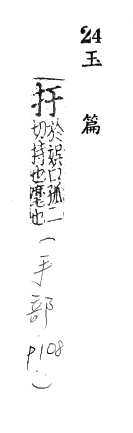 24
玉篇
扜於娛口孤二切持也麾也（手部p108）